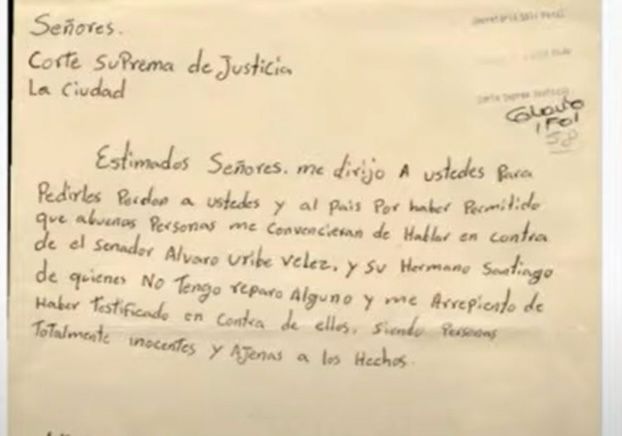 Señores.
Corte Suprema de Justicia
La Ciudad
Estimados Señores. me dirijo A ustedes Para
Pedirles Perdon a ustedes y al Pais Por haber Permitido
que algunas Personas me convencieran de Hablar en contra
de el Senador Alvaro Uribe Velez, y su Hermano Santiago
de quienes No Tengo reparo Alguno y me Arrepiento de
Haber Testificado en contra de ellos, siendo Personas
Totalmente inocentes y Ajenas a los Hechos.